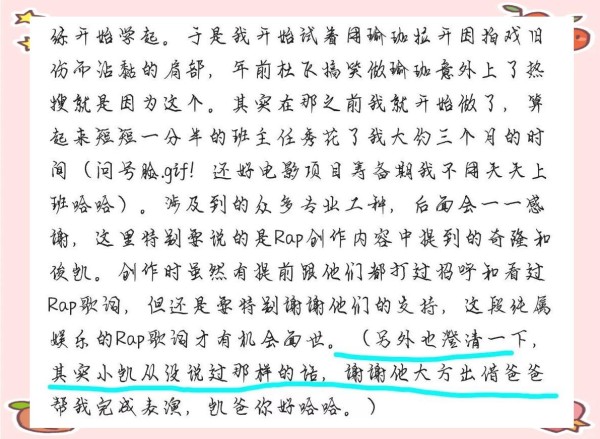 练开始学起。于是我开始试着用瑜珈拉开因拍戏旧
伤而沾黏的肩部，年前杜飞搞笑做瑜珈意外上了热
搜就是因为这个。其实在那之前我就开始做了，算
起来短短一分半的班主任秀花了我大约三个月的时
间（问号脸.gif！还好电影项目筹备期我不用天天上
班哈哈）。涉及到的众多专业工种，后面会一一感
谢，这里特别要说的是Rap创作内容中提到的奇隆和
俊凯。创作时虽然有提前跟他们都打过招呼和看过
Rap歌词，但还是要特别谢谢他们的支持，这段纯属
娱乐的Rap歌词才有机会面世。（另外也澄清一下，
其实小凯从没说过那样的话，谢谢他大方出借爸爸
帮我完成表演，凯爸你好哈哈。）